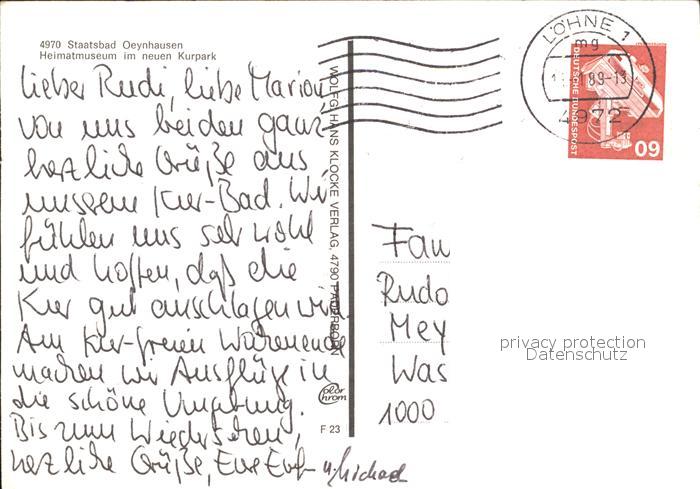 4970 Staatsbad Oeynhausen
Heimatmuseum im neuen Kurpark
Lieber Rudi, liebe Marion,
von uns beiden ganz
herzliche Grüße aus
unserem Kur-Bad. Wir
fühlen uns sehr wohl
und hoffen, daß die
Kur gut anschlagen wird.
Am kur-freien Wochenende
machen wir Ausflüge in
die schöne Umgebung.
Bis zum Wiedersehen,
herzliche Grüße, Eure
u. Michael
WOLFG. HANS KLOCKE VERLAG, 4790 PADERBORN
Color
chrom
F 23
LÖHNE 1
mg
89-13
4972
DEUTSCHE BUNDESPOST
60
Fam
Rudo
Mey
Was
1000
privacy protection
Datenschutz